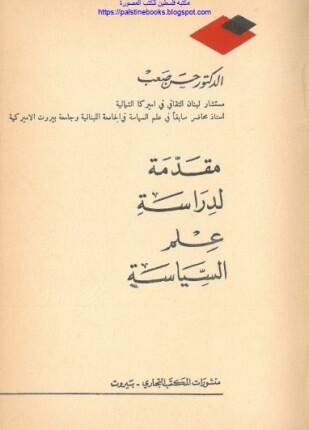 مكتبة فلسطين للكتب المصورة
https://palstinebooks.blogspot.com
الدكتور حسن صعب
مستشار لبنان الثقافي في اميركا الشمالية
استاذ محاضر سابقاً في علم السياسة في الجامعة اللبنانية وجامعة بيروت الاميركية
مقدّمة
لدراسة
علم
السياسة
منشورات المكتب التجاري - بيروت